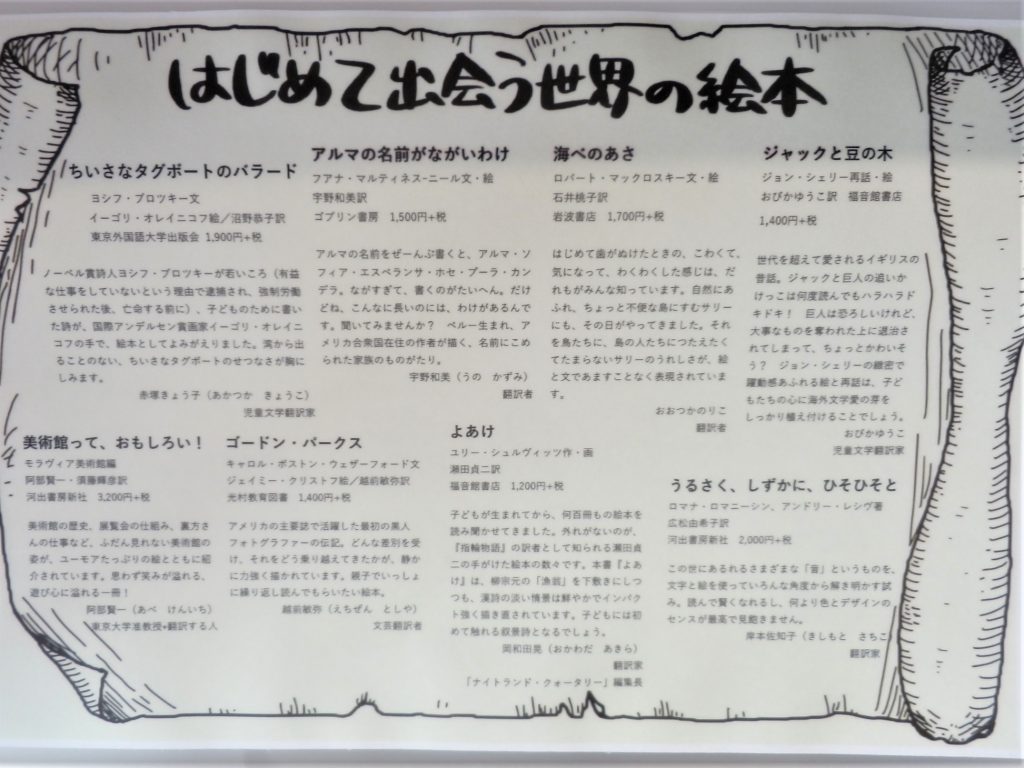 はじめて出会う世界の絵本
ちいさなタグボートのバラード
ヨシフ・ブロツキー文
イーゴリ・オレイニコフ絵／沼野恭子訳
東京外国語大学出版会 1,900円+税
ノーベル賞詩人ヨシフ・ブロツキーが若いころ（有益
な仕事をしていないという理由で逮捕され、強制労働
させられた後、亡命する前に）、子どものために書い
た詩が、国際アンデルセン賞画家イーゴリ・オレイニ
コフの手で、絵本としてよみがえりました。湾から出
ることのない、ちいさなタグボートのせつなさが胸に
しみます。
赤塚きょう子（あかつか きょうこ）
児童文学翻訳家
アルマの名前がながいわけ
フアナ・マルティネス-ニール文・絵
宇野和美訳
ゴブリン書房 1,500円+税
アルマの名前をぜーんぶ書くと、アルマ・ソ
フィア・エスペランサ・ホセ・プーラ・カン
デラ。ながすぎて、書くのがたいへん。だけ
どね、こんなに長いのには、わけがあるんで
す。聞いてみませんか？ ペルー生まれ、ア
メリカ合衆国在住の作者が描く、名前にこめ
られた家族のものがたり。
宇野和美（うの かずみ）
翻訳者
海べのあさ
ロバート・マックロスキー文・絵
石井桃子訳
岩波書店 1,700円+税
はじめて歯がぬけたときの、こわくて、
気になって、わくわくした感じは、だ
れもがみんな知っています。自然にあ
ふれ、ちょっと不便な島にすむサリー
にも、その日がやってきました。それ
を鳥たちに、島の人たちにつたえたく
てたまらないサリーのうれしさが、絵
と文であますことなく表現されていま
す。
おおつかのりこ
翻訳者
ジャックと豆の木
ジョン・シェリー再話・絵
おびかゆうこ訳 福音館書店
1,400円+税
世代を超えて愛されるイギリスの
昔話。ジャックと巨人の追いか
けっこは何度読んでもハラハラド
キドキ！ 巨人は恐ろしいけれど、
大事なものを奪われた上に退治さ
れてしまって、ちょっとかわいそ
う？ ジョン・シェリーの緻密で
躍動感あふれる絵と再話は、子ど
もたちの心に海外文学愛の芽を
しっかり植え付けることでしょう。
おびかゆうこ
児童文学翻訳家
美術館って、おもしろい！
モラヴィア美術館編
阿部賢一・須藤輝彦訳
河出書房新社 3,200円+税
美術館の歴史、展覧会の仕組み、裏方さ
んの仕事など、ふだん見れない美術館の
姿が、ユーモアたっぷりの絵とともに紹
介されています。思わず笑みが溢れる、
遊び心に溢れる一冊！
阿部賢一（あべ けんいち）
東京大学准教授+翻訳する人
ゴードン・パークス
キャロル・ボストン・ウェザーフォード文
ジェイミー・クリストフ絵／越前敏弥訳
光村教育図書 1,400円+税
アメリカの主要誌で活躍した最初の黒人
フォトグラファーの伝記。どんな差別を受
け、それをどう乗り越えてきたかが、静か
に力強く描かれています。親子でいっしょ
に繰り返し読んでもらいたい絵本。
越前敏弥（えちぜん としや）
文芸翻訳者
よあけ
ユリー・シュルヴィッツ作・画
瀬田貞二訳
福音館書店 1,200円+税
子どもが生まれてから、何百冊もの絵本を
読み聞かせてきました。外れがないのが、
『指輪物語』の訳者として知られる瀬田貞
二の手がけた絵本の数々です。本書『よあ
け』は、柳宗元の「漁翁」を下敷きにしつ
つも、漢詩の淡い情景は鮮やかでインパク
ト強く描き直されています。子どもには初
めて触れる叙景詩となるでしょう。
岡和田晃（おかわだ あきら）
翻訳家
「ナイトランド・クォータリー」編集長
うるさく、しずかに、ひそひそと
ロマナ・ロマニーシン、アンドリー・レシヴ著
広松由希子訳
河出書房新社 2,000円+税
この世にあるれるさまざまな「音」というものを、
文字と絵を使っていろんな角度から解き明かす試
み。読んで賢くなれるし、何より色とデザインの
センスが最高で見飽きません。
岸本佐知子（きしもと さちこ
翻訳家